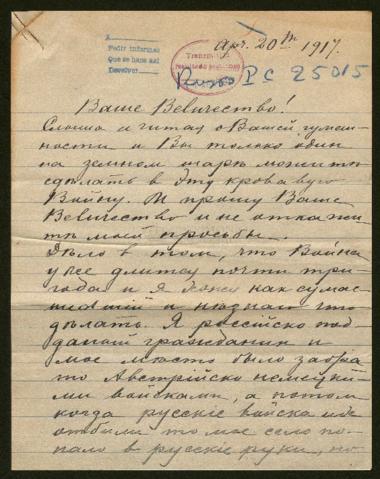 Apr. 20th 1917.
A
Pedir informes
Que se hara así
Devolver
Ruso PC 25015
Ваше Величество!
Слыша и читая о Вашей гуман-
ности и Вы только один
на земном шарѣ можите
сдѣлать в Эту кровавую
Войну. И прошу Ваше
Величество и не откажи-
ть моей просьбы.
Дѣло в том, что Война
уже длится почти три
года и я как сумас-
шедший и незнаю что
дѣлать. Я россійско под-
данный гражданин и
мое мѣсто было забра-
то Австрійско немецки-
ми войсками, а потом
когда русскіе войска
отбили то мое село по-
пало в русскіе руки, но